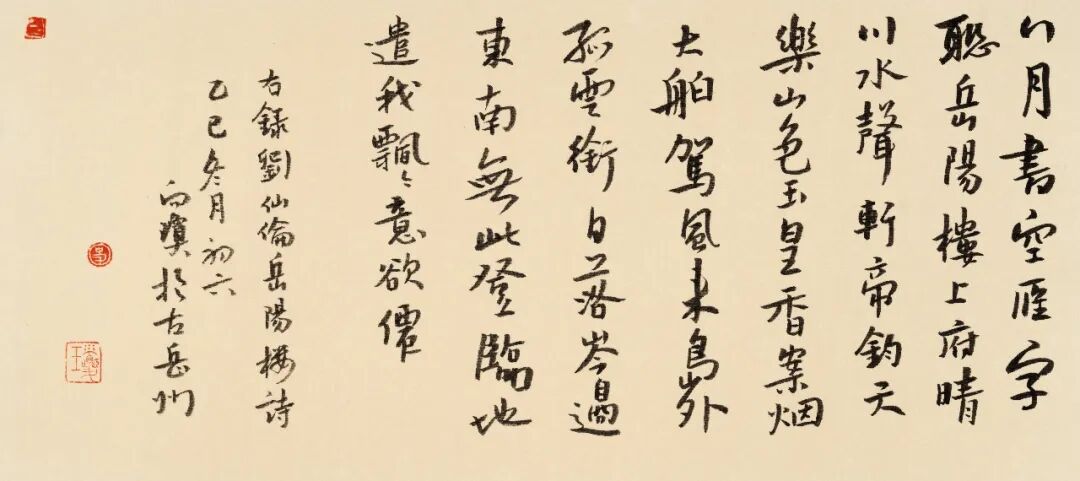 八月書空雁字
聮岳陽樓上府晴
川水聲軒帝鈞天
樂山色玉皇香案烟
大舶駕風来島外
孤雲銜日落岑邊
東南無此登臨地
遣我飄〻意欲僊
右録劉仙倫岳陽樓詩
乙巳冬月初六
向瓊於古岳州